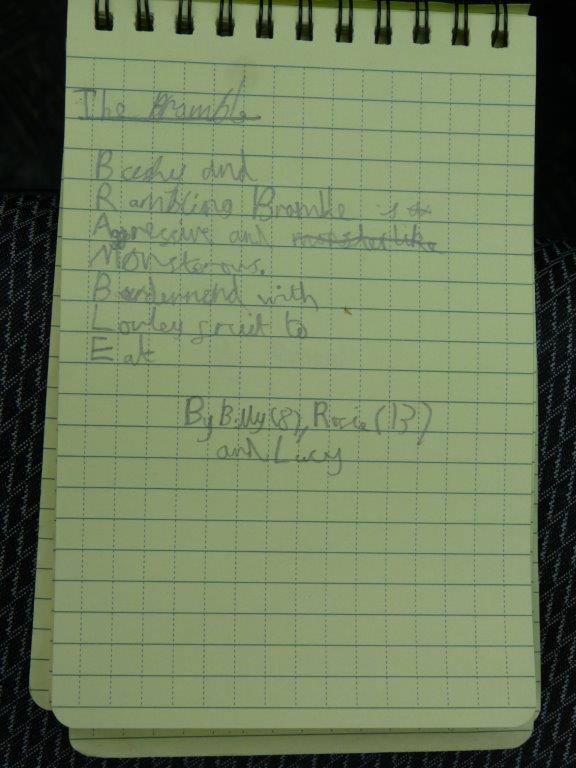 The Bramble
and
Rambling Bramke
Aggressive and monsterlike
Monsterous.
Burdennend with
Lovley fruit to
Eat
By Billy (8), Rose (13)
and Lucy